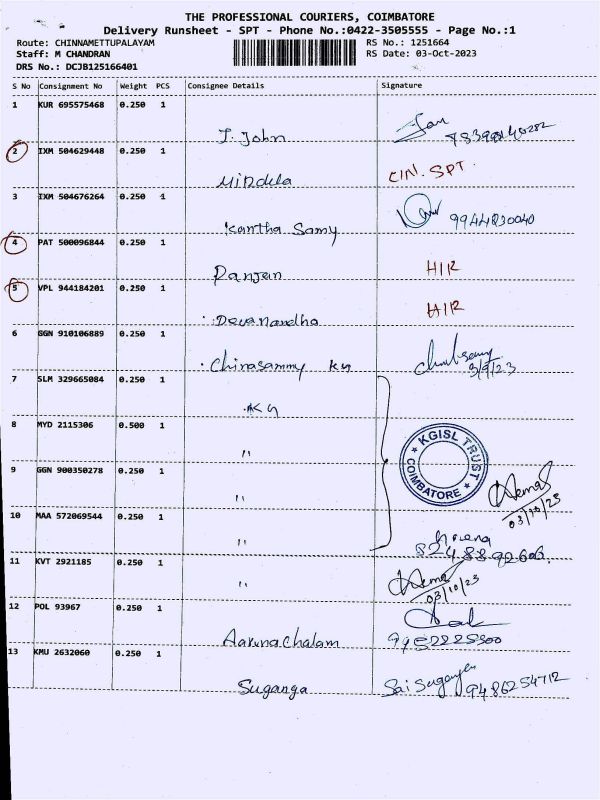 THE PROFESSIONAL COURIERS, COIMBATORE
Delivery Runsheet - SPT - Phone No.:0422-3505555 - Page No.:1
Route: CHINNAMETTUPALAYAM RS No.: 1251664
Staff: M CHANDRAN RS Date: 03-Oct-2023
DRS No.: DCJB125166401
S No Consignment No Weight PCS Consignee Details Signature
1 KUR 695575468 0.250 1
J. John
2 IXM 504629448 0.250 1
Mirdula CIN. SPT.
3 IXM 504676264 0.250 1
Kantha Samy 9944830040
4 PAT 500096844 0.250 1
Ranjan HIR
5 VPL 944184201 0.250 1
Devanandha HIR
6 GGN 910106889 0.250 1
Chinasammy KG 3/9/23
7 SLM 329665084 0.250 1
KG
8 MYD 2115306 0.500 1
"
KGISL TRUST
COIMBATORE
9 GGN 900350278 0.250 1
"
Hema
03/10/23
10 MAA 572069544 0.250 1
"
8248892606
11 KVT 2921185 0.250 1
"
Hema
03/10/23
12 POL 93967 0.250 1
Aarunachalam
13 KMU 2632060 0.250 1
Suganga Sai 9486254712